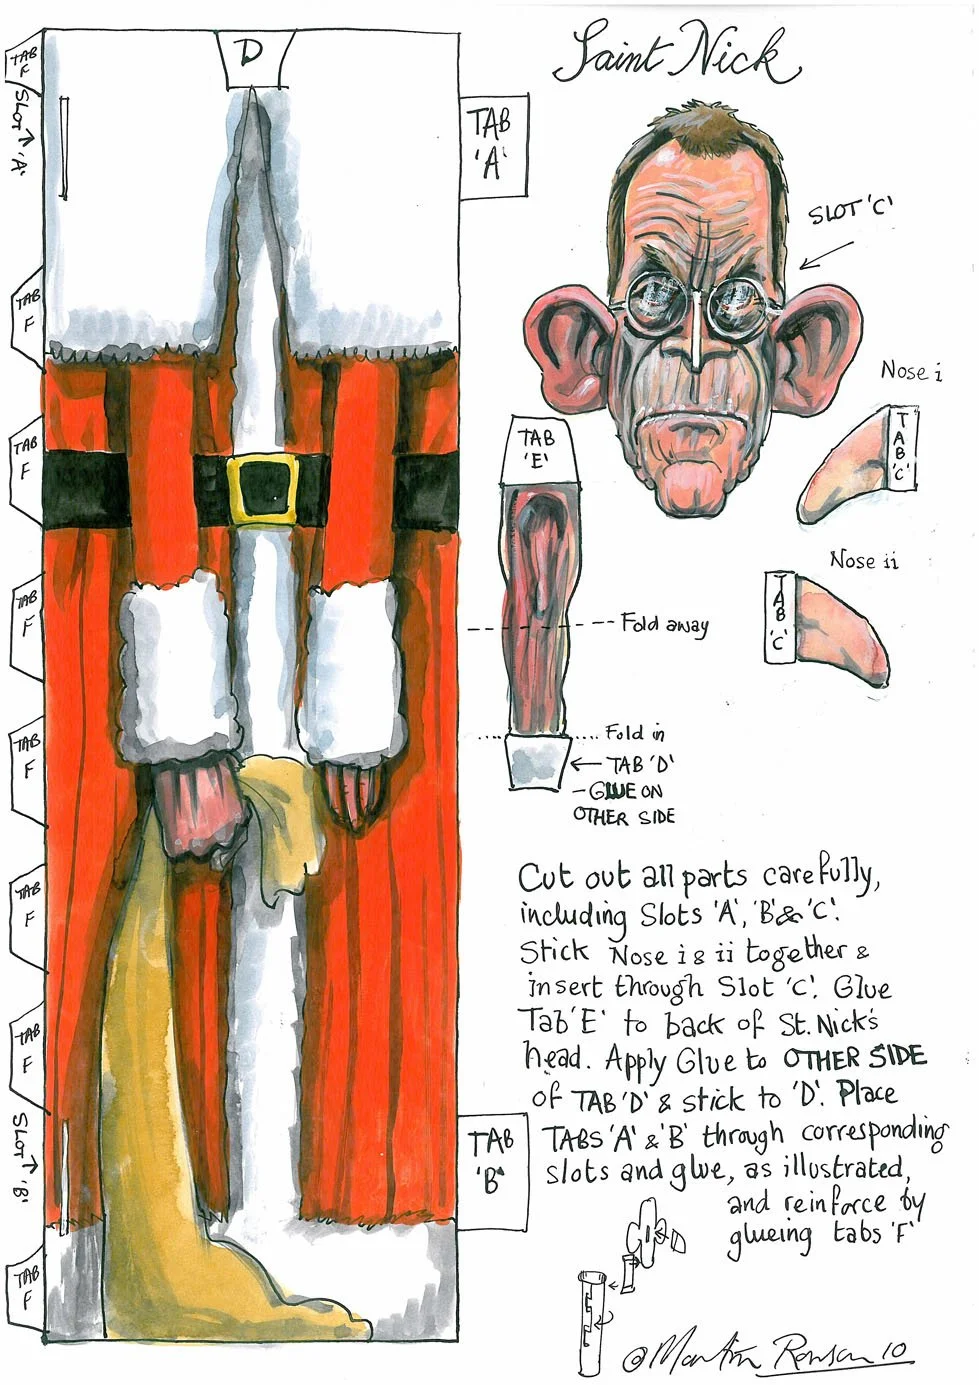 Saint Nick
D
TAB F
SLOT 'A'
TAB 'A'
SLOT 'C'
TAB F
Nose i
TAB 'C'
TAB F
TAB 'E'
Nose ii
TAB 'C'
TAB F
Fold away
TAB F
Fold in
TAB 'D'
- GLUE ON
OTHER SIDE
TAB F
Cut out all parts carefully,
including Slots 'A', 'B' & 'C'.
Stick Nose i & ii together &
insert through Slot 'C'. Glue
Tab 'E' to back of St. Nick's
head. Apply Glue to OTHER SIDE
of TAB 'D' & stick to 'D'. Place
TABS 'A' & 'B' through corresponding
slots and glue, as illustrated,
and reinforce by
glueing tabs 'F'
TAB F
SLOT 'B'
TAB 'B'
TAB F
© Martin Rowson 10